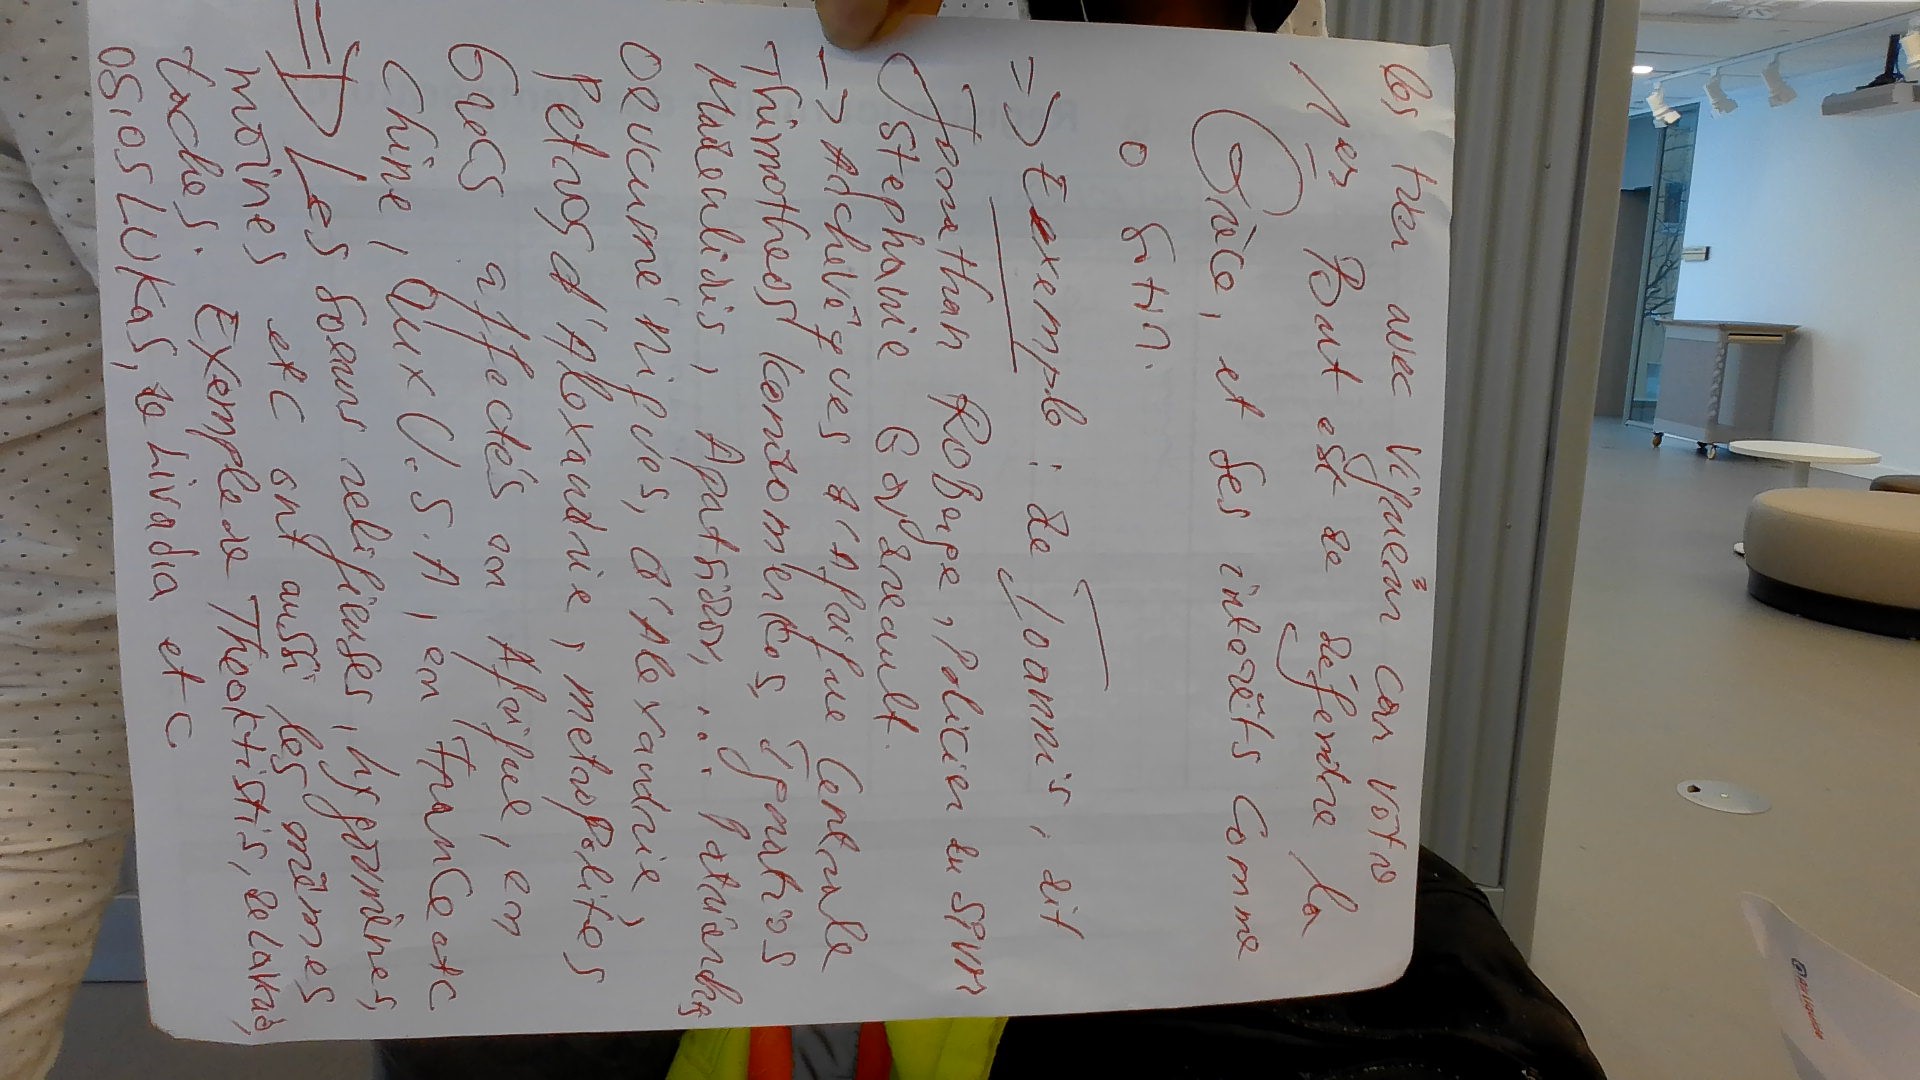 les tuer avec vigueur car votre
1er But est de défendre la
Grèce, et ses intérêts comme
o Gitin.
=> Exemple : de Joannis, dit
Jonathan Roberge, Policier du SPVM
Stephanie Gaydreault.
-> Archevêques d'Afrique Centrale
Thimotheos kontomerkos, Ignatios
Madenlidis, Apntision, ... Patriarches
Oeucuméniques, d'Alexandrie,
Petros d'Alexandrie, metropolites
Grecs affectés en Afrique, en
Chine, aux U.S.A, en France etc
=> Les Soeurs religieuses, higoumènes,
moines etc ont aussi les mêmes
taches. Exemple de Theoktistis, de Lakia,
osios Lukas, de Livadia etc